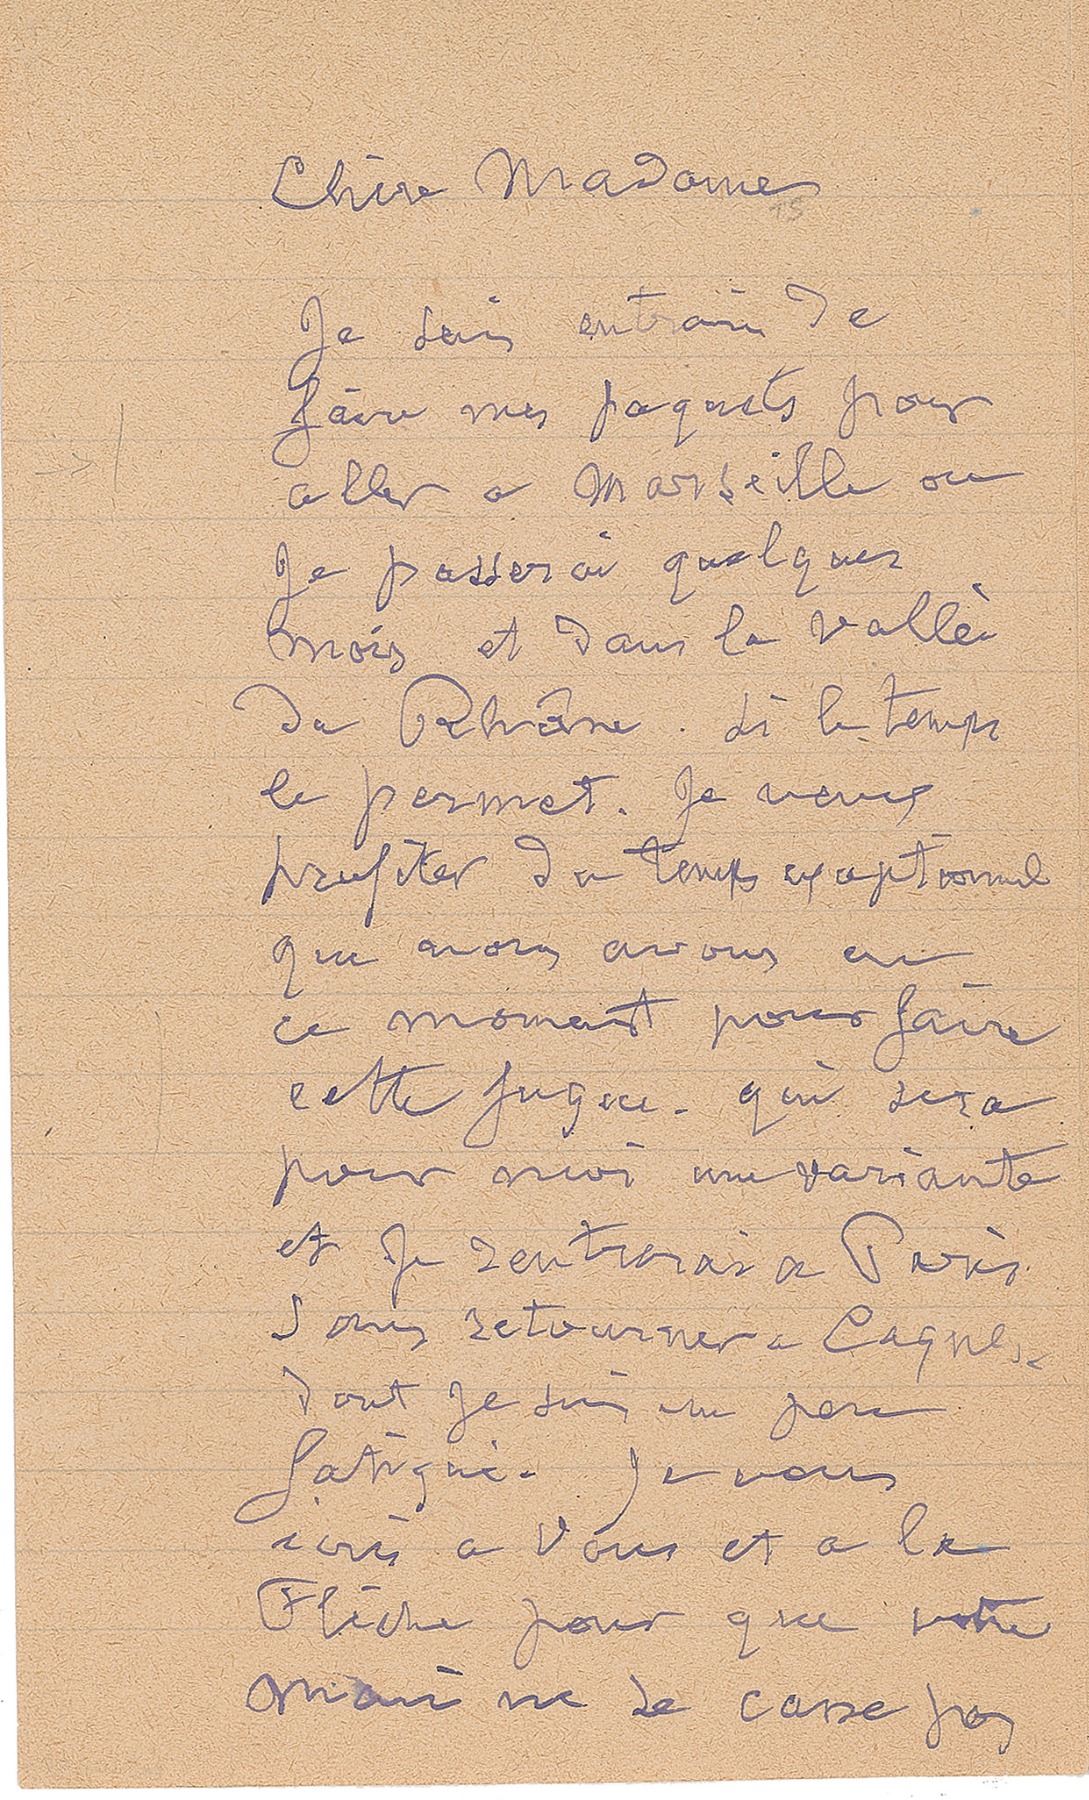 Chère Madame
Je suis entrain de
faire mes paquets pour
aller a Marseille ou
Je passerai quelques
mois et dans la vallée
du Rhône. si le temps
le permet. Je veux
profiter du temps exeptionnel
que nous avons en
ce moment pour faire
cette fugue. qui sera
pour moi une variante
et Je rentrerai a Paris
sans retourner a Cagnes
dont Je suis un peu
fatigué. Je vous
écris a vous et a la
Flèche pour que votre
mari ne se casse pas